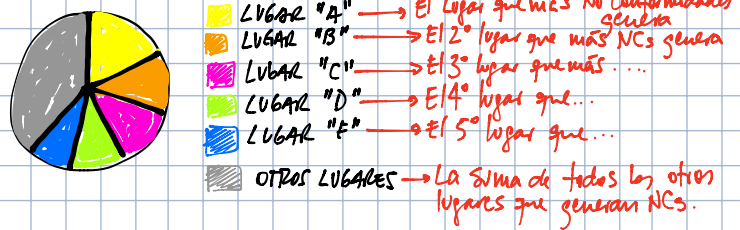 LUGAR "A" → El lugar que más No Conformidades genera
LUGAR "B" → El 2º lugar que más NCs genera
LUGAR "C" → El 3º lugar que más ....
LUGAR "D" → El 4º lugar que...
LUGAR "E" → El 5º lugar que...
OTROS LUGARES → La suma de todos los otros
lugares que generan NCs.